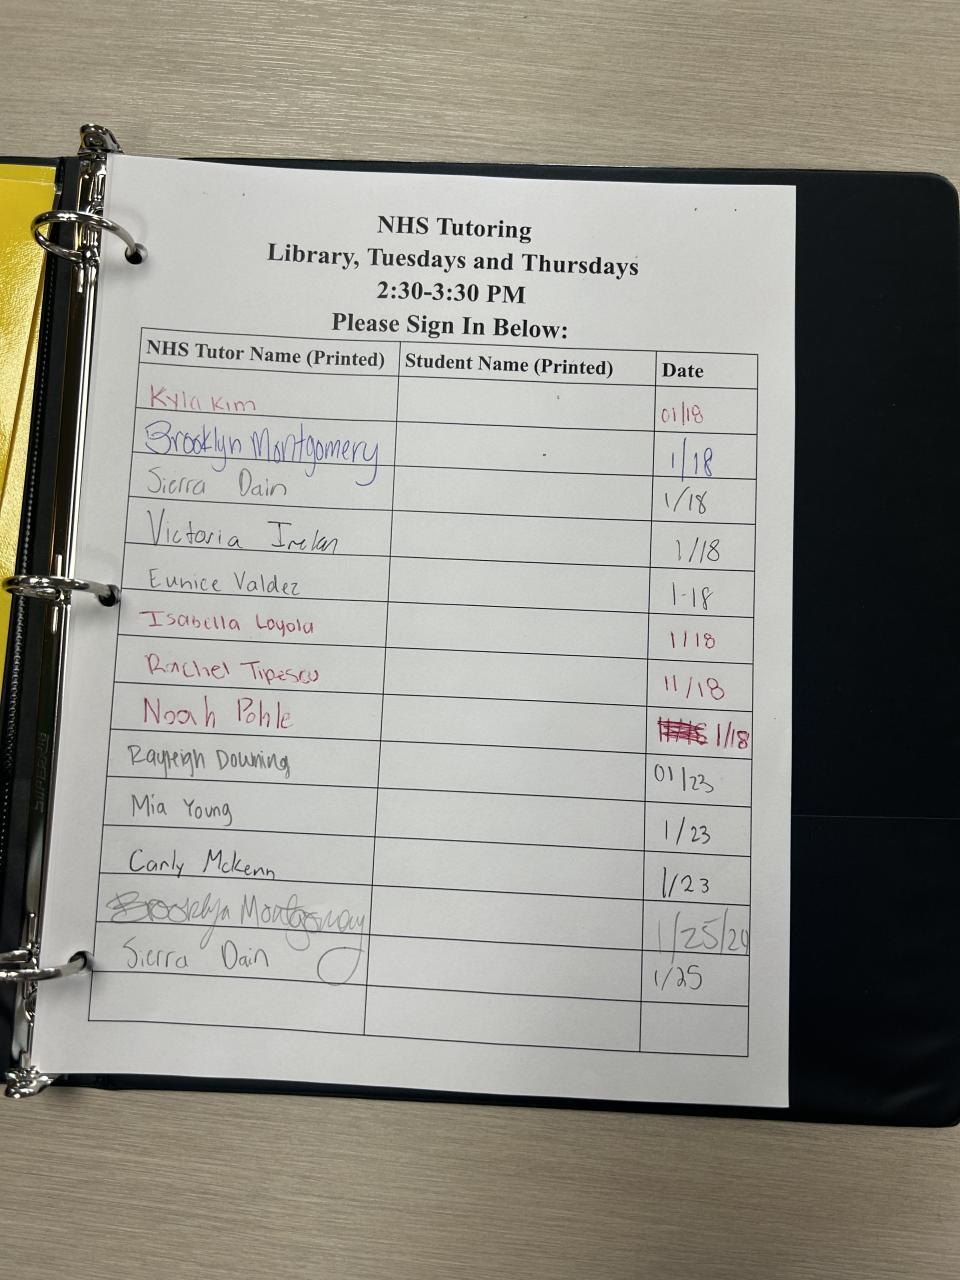 NHS Tutoring
Library, Tuesdays and Thursdays
2:30-3:30 PM
Please Sign In Below:
NHS Tutor Name (Printed) Student Name (Printed) Date
Kyla Kim 01/18
Brooklyn Montgomery 1/18
Sierra Dain 1/18
Victoria Irelan 1/18
Eunice Valdez 1-18
Isabella Loyola 1/18
Rachel Tipescu 11/18
Noah Pohle 1/18
Rayleigh Downing 01/23
Mia Young 1/23
Carly McKenn 1/23
Brooklyn Montgomery 1/25/24
Sierra Dain 1/25